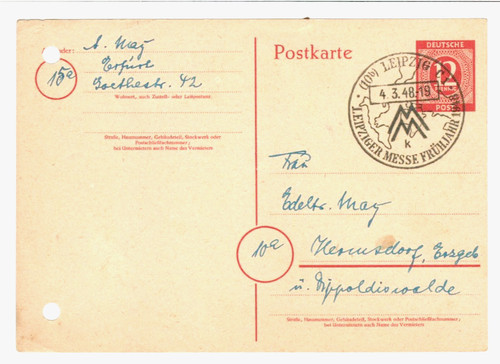 Absender: A. May
Erfurt
Goethestr. 42
Wohnort, auch Zustell- oder Leitpostamt
15a
Straße, Hausnummer, Gebäudeteil, Stockwerk oder
Postschließfachnummer;
bei Untermietern auch Name des Vermieters
Postkarte
DEUTSCHE
12
PFENNIG
POST
(10b) LEIPZIG C2
4.3.48-19
MM
K
LEIPZIGER MESSE FRÜHJAHR 1948
Frau
Edeltr. May
10a
Hermsdorf, Erzgeb
ü. Dippoldiswalde
Straße, Hausnummer, Gebäudeteil, Stockwerk oder Postschließfachnummer;
bei Untermietern auch Name des Vermieters